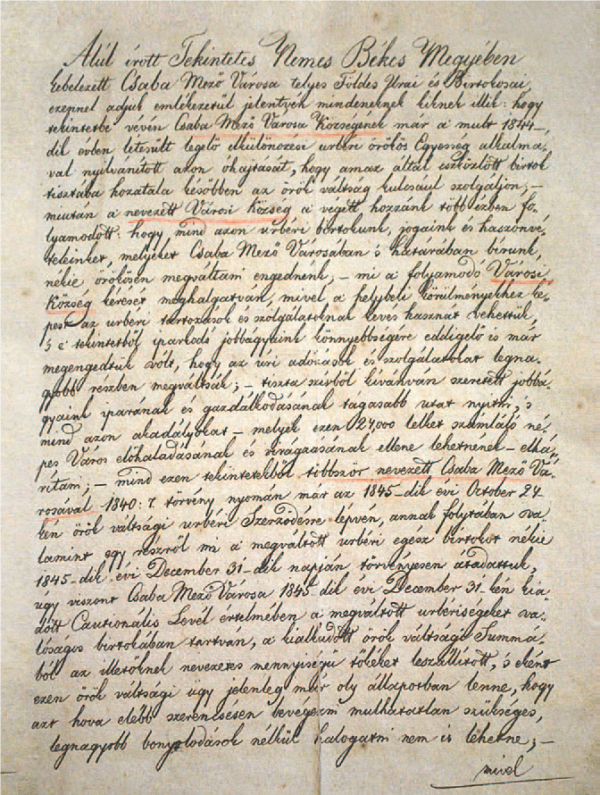 Alúl irott Tekintetes Nemes Békes Megyében
kebelezett Csaba Mező Városa telyes Földes Urai és Birtokosai
ezennel adjuk emlékezetűl jelentvén mindeneknek kiknek illik: hogy
tekintetbe vévén Csaba Mező Városa Községének már a mult 1844-
dik évben letesűlt legelő elkülönözési urbéri örökös Egyesség alkalmá-
val nyilvánított azon óhajtását, hogy amaz által eszközlött birtok
tisztába hozatala későbben az örök váltság kulcsául szolgáljon; –
miután a nevezett Városi Község a végett hozzánk több ízben fo-
lyamodott: hogy mind azon urbéri birtokunk, jogaink és haszonvé-
teleinket, melyeket Csaba Mező Városában 's határában bírunk,
nékie örökösen megváltani engednénk, – mi a folyamodó Városi
Község kérését meghalgatván, mivel a helybeli körülményekhez ké-
pest az urbéri tartozások és szolgálatoknak kevés hasznát vehettük,
's e' tekintetből iparkodó jobbágyaink könnyebbségére eddigelő is már
megengedtük vólt, hogy az úri adózások és szolgálatokat legna-
gyobb részben megváltsák; – tiszta szivből kívánván szeretett jobbá-
gyaink iparának és gazdálkodásának tágasabb utat nyitni, 's
mind azon akadályokat – melyek ezen 24,000 lelket számláló né-
pes Város előhaladásának és virágzásának ellene lehetnének – elhá-
rítani; – mind ezen tekintetekből többször nevezett Csaba Mező Vá-
rosával 1840: 7 törvény nyomán már az 1845-dik évi October 24-
kén örök váltsági urbéri Szerződésre lépvén, annak folytában va-
lamint egy részről mi a megváltott urbéri egész birtokot nékie
1845-dik évi December 31-dik napján törvényesen átadattuk,
úgy viszont Csaba Mező Városa 1845-dik évi December 31-kén kia-
dott Cautionális Levél értelmében a megváltott urbériségeket va-
lóságos birtokában tartván, a kialkudott örök váltsági Summá-
ból az illetőknek nevezetes mennyiségű tőkéket leszállított, 's eként
ezen örök váltsági ügy jelenleg már oly állapotban lenne, hogy
azt hova elébb szerencsésen bevégezni mulhatatlan szükséges,
legnagyobb bonyolodások nélkül halogatni nem is lehetne; –
mivel